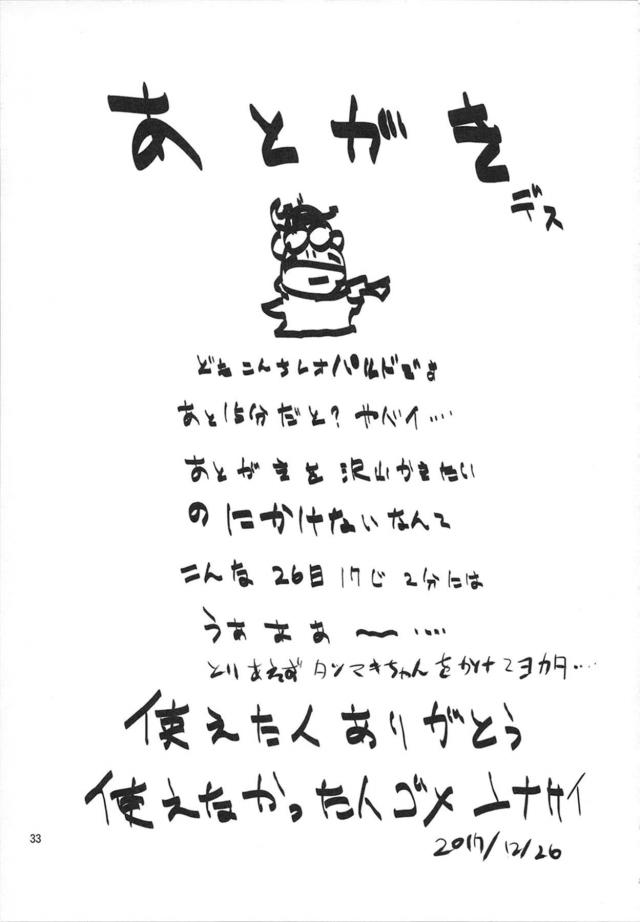 あとがき
デス
どもこんちレオパルドデす
あと15分だと?ヤバイ…
あとがきを沢山かきたい
のにかけないなんて
こんな26日17じ2分には
うあああ〜…
とりあえずタンマキちゃんをかけてヨカタ…
使えた人ありがとう
使えなかった人ゴメンナサイ
2017/12/26
33